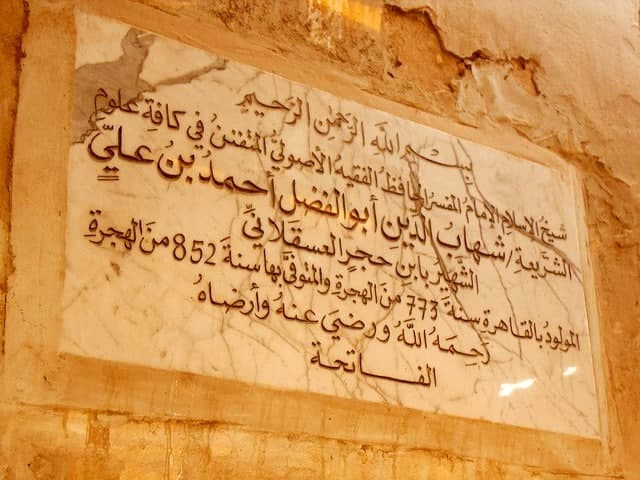 بِسْمِ اللَّهِ الرَّحْمٰنِ الرَّحِيمِ
شيخُ الإسلامِ الإمامُ المفسرُ الحافظُ الفقيهُ الأصوليُّ المتفننُ في كافةِ علومِ
الشريعةِ / شهابُ الدينِ أبو الفضل أحمدُ بنُ عليٍّ
الشهيرُ بابنِ حجرٍ العسقلانيِّ
المولودُ بالقاهرةِ سنةَ 773 منَ الهجرةِ والمتوفَّى بها سنةَ 852 منَ الهجرةِ
رَحِمَهُ اللَّهُ ورَضِيَ عنهُ وأرضاهُ
الفــاتحــة